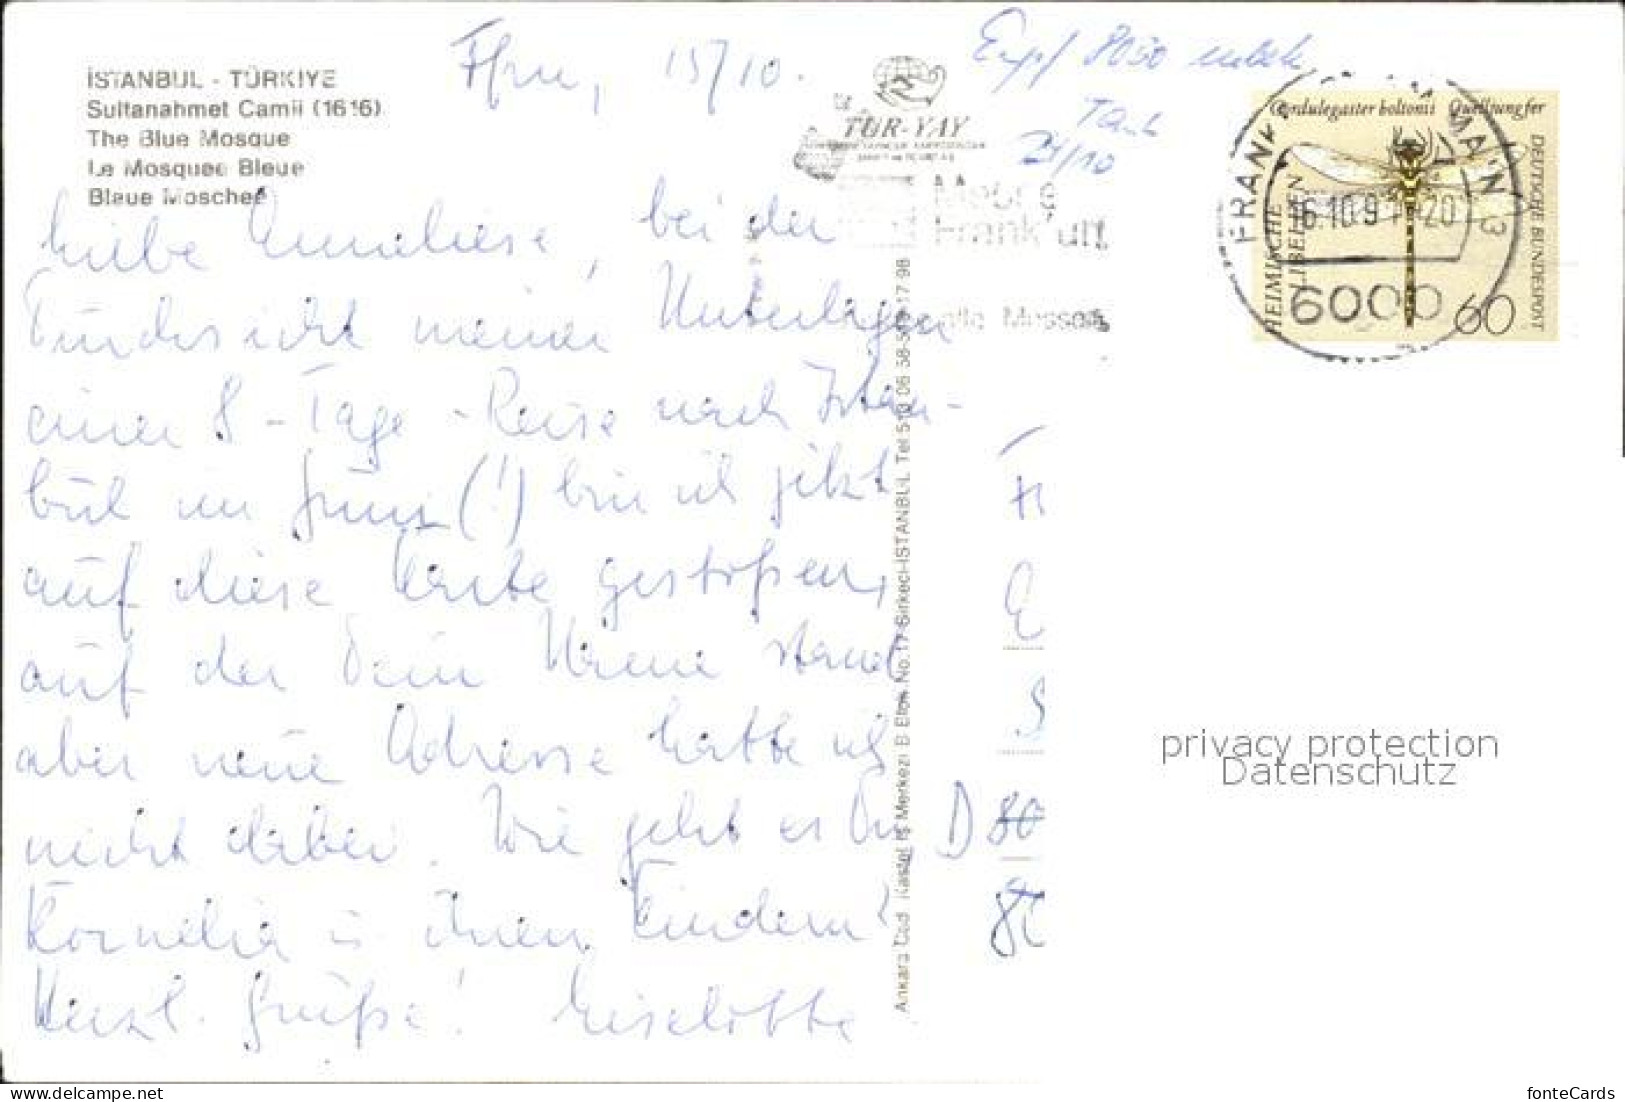 İSTANBUL - TÜRKİYE
Sultanahmet Camii (1616)
The Blue Mosque
Le Mosquee Bleue
Blaue Moschee
Ffm, 15/10.
Empf 8050
21/10
TUR-YAY
Frankfurt
Cordulegaster boltonii Quelljungfer
DEUTSCHE BUNDESPOST
HEIMISCHE
LIBELLEN
60
FRANKFURT AM MAIN 3
16.10.91-20
6000
Liebe Anneliese, bei der
Durchsicht meiner Unterlagen
einer 8-Tage-Reise nach Istan-
bul im Juni (!) bin ich jetzt
auf diese Karte gestoßen,
auf der Dein Name stand
aber neue Adresse hatte ich
nicht dabei. Wie geht es Dir
Kornelia u ihren Kindern?
Herzl. Grüße! Liselotte
D 80
Ankara Cad. No:17 Sirkeci-İSTANBUL Tel
privacy protection
Datenschutz
delcampe.net
fonteCards